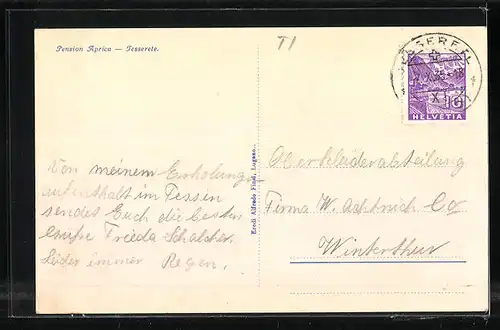 Pension Aprica — Tesserete.
T1
TESSERETE
10
HELVETIA
Von meinem Erholungs-
aufenthalt im Tessin
sendet Euch die besten
Grüße Frieda Schalcher.
Leider immer Regen.
Eredi Alfredo Finzi, Lugano.
Oberkleiderabteilung
Firma W. Achtnich Co
Winterthur